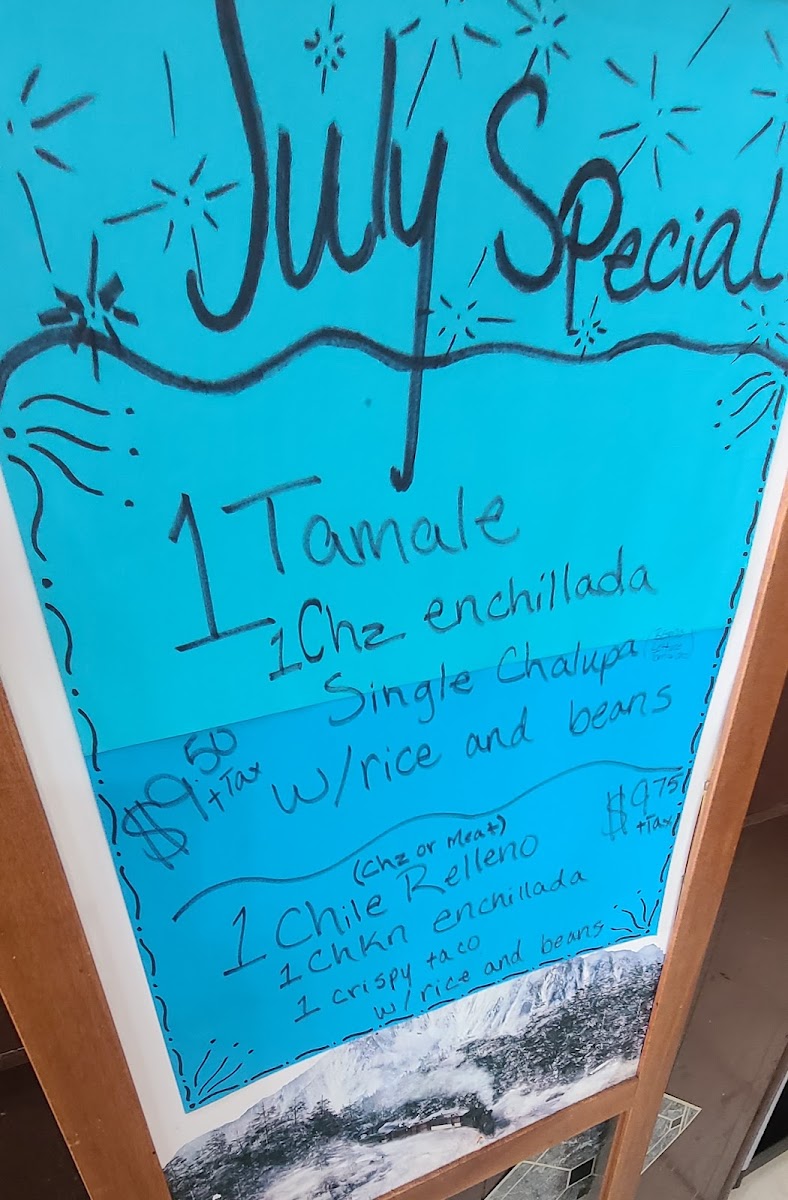 July Special
1 Tamale
1 Chz enchillada
Single Chalupa
w/rice and beans
$9 50
+Tax
$9 75
+Tax
(Chz or Meat)
1 Chile Relleno
1 Chkn enchillada
1 crispy taco
w/rice and beans